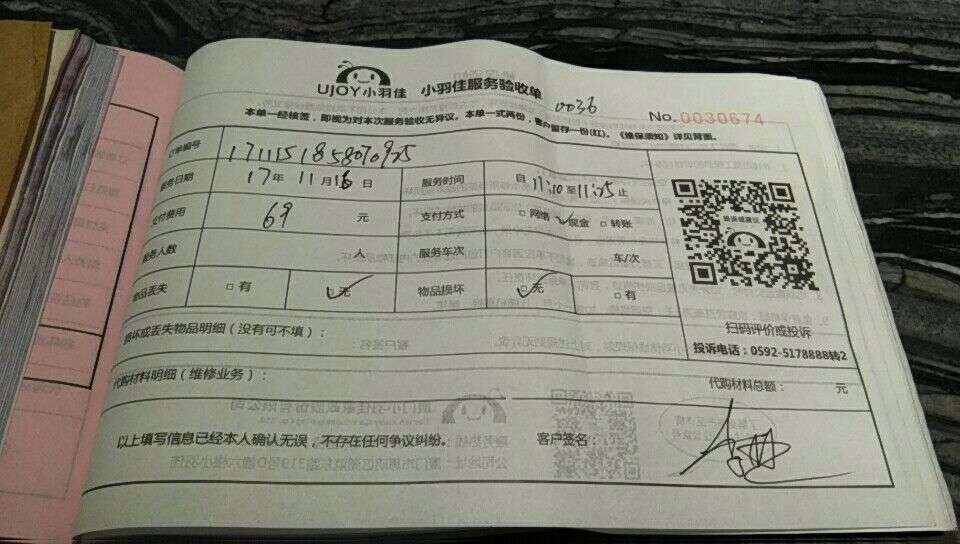 UJOY小羽佳 小羽佳服务验收单
0036
No. 0030674
本单一经核签，即视为对本次服务验收无异议。本单一式两份，客户留存一份(红)。《维保须知》详见背面。
订单编号 1711151858070925
服务日期 17年 11月16日 服务时间 自 11:10 至 11:25 止
支付费用 69 元 支付方式 □网络 ✓现金 □转账
服务人数 人 服务车次 车/次
物品丢失 □有 ✓无 物品损坏 ✓无 □有
投诉或建议
扫码评价或投诉
投诉电话：0592-5178888转2
损坏或丢失物品明细（没有可不填）：
代购材料明细（维修业务）： 代购材料总额： 元
以上填写信息已经本人确认无误，不存在任何争议纠纷。 客户签名：